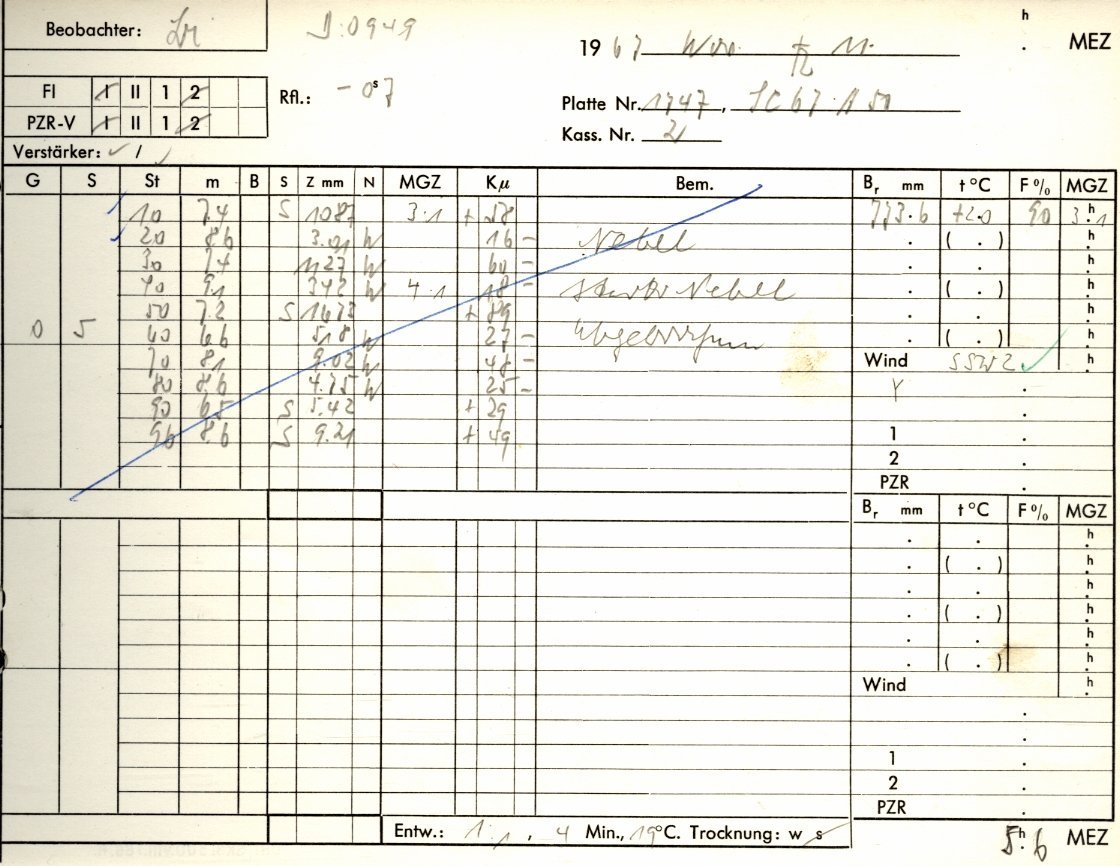 Beobachter:
D: 0949
1967 11. h . MEZ
FI I II 1 2
Rfl.: - 0ˢ7
Platte Nr. 1747,
PZR-V I II 1 2
Kass. Nr. 2
Verstärker: ✓ / ✓
G S St m B S Z mm N MGZ Kμ Bem. Bᵣ mm t °C F% MGZ
10 7.4 S 1087 3.1 + 773.6 +2.0 90 3.1 h
20 8.6 3.01 W 16 - Nebel . ( . ) h
30 7.4 1127 W 60 - . . h
40 9.1 342 W 4.1 18 - starker Nebel . ( . ) h
50 7.2 S 1673 + 89 . . h
0 5 60 6.6 518 W 27 - . ( . ) h
70 8.1 9.02 W 48 - Wind SSW2 h
80 8.6 4.75 W 25 - Y .
90 6.5 S 5.42 + 29
96 8.6 S 9.21 + 49 1 .
2 .
PZR .
Bᵣ mm t °C F% MGZ
. . h
. ( . ) h
. . h
. ( . ) h
. . h
. ( . ) h
Wind h
.
.
1 .
2 .
PZR .
Entw.: 1:1, 4 Min., 19°C. Trocknung: w s
5 h. 6 MEZ